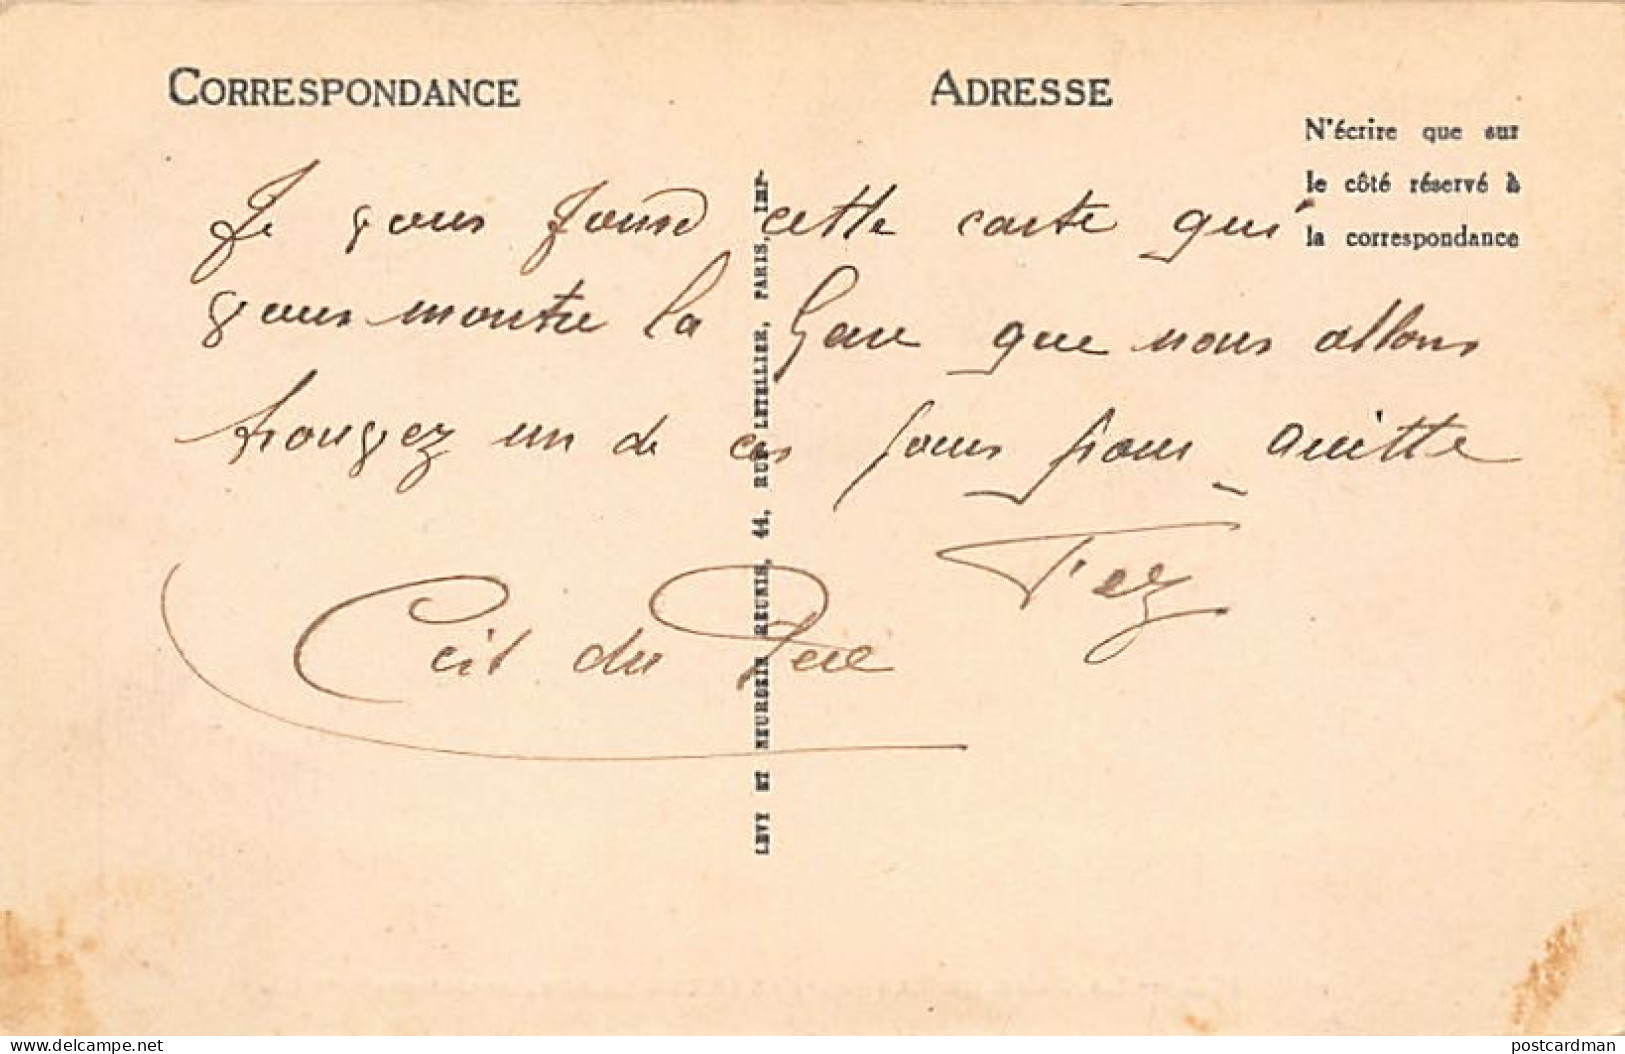 CORRESPONDANCE
ADRESSE
N'écrire que sur
le côté réservé à
la correspondance
Je vous cette carte qui
vous montre la Gare que nous allons
un de ces jours pour quitte
Fez
du
LEVY ET NEURDEIN REUNIS, 44, RUE LETELLIER, PARIS, IMP.
delcampe.net
postcardman